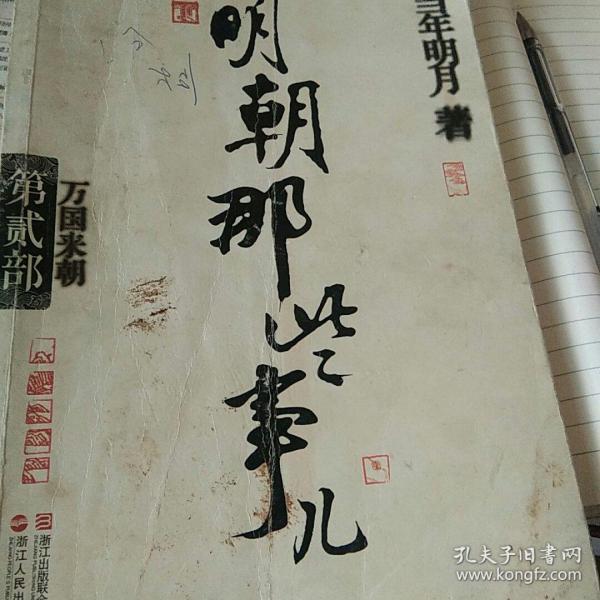 当年明月 著
明朝那些事儿
万国来朝
第贰部
浙江出版联合
浙江人民出
孔夫子旧书网
www.kongfz.com